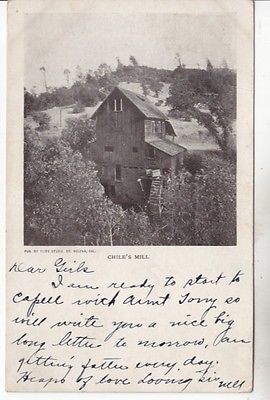 PUB. BY ELITE STUDIO, ST. HELENA, CAL.
CHILE'S MILL
Dear Girls
I am ready to start to
Capell with Aunt Tony so
will write you a nice big
long letter to morrow, am
getting fatter every day.
Heaps of love Loving Sis
nell